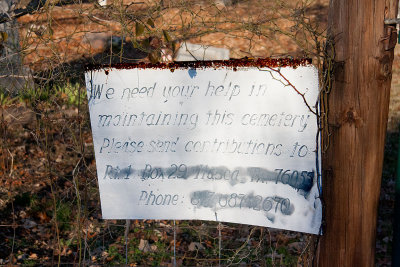 We need your help in
maintaining this cemetery
Please send contributions to
Rt.1 Box 29 Itasca, Tx. 76055
Phone: 687-2670